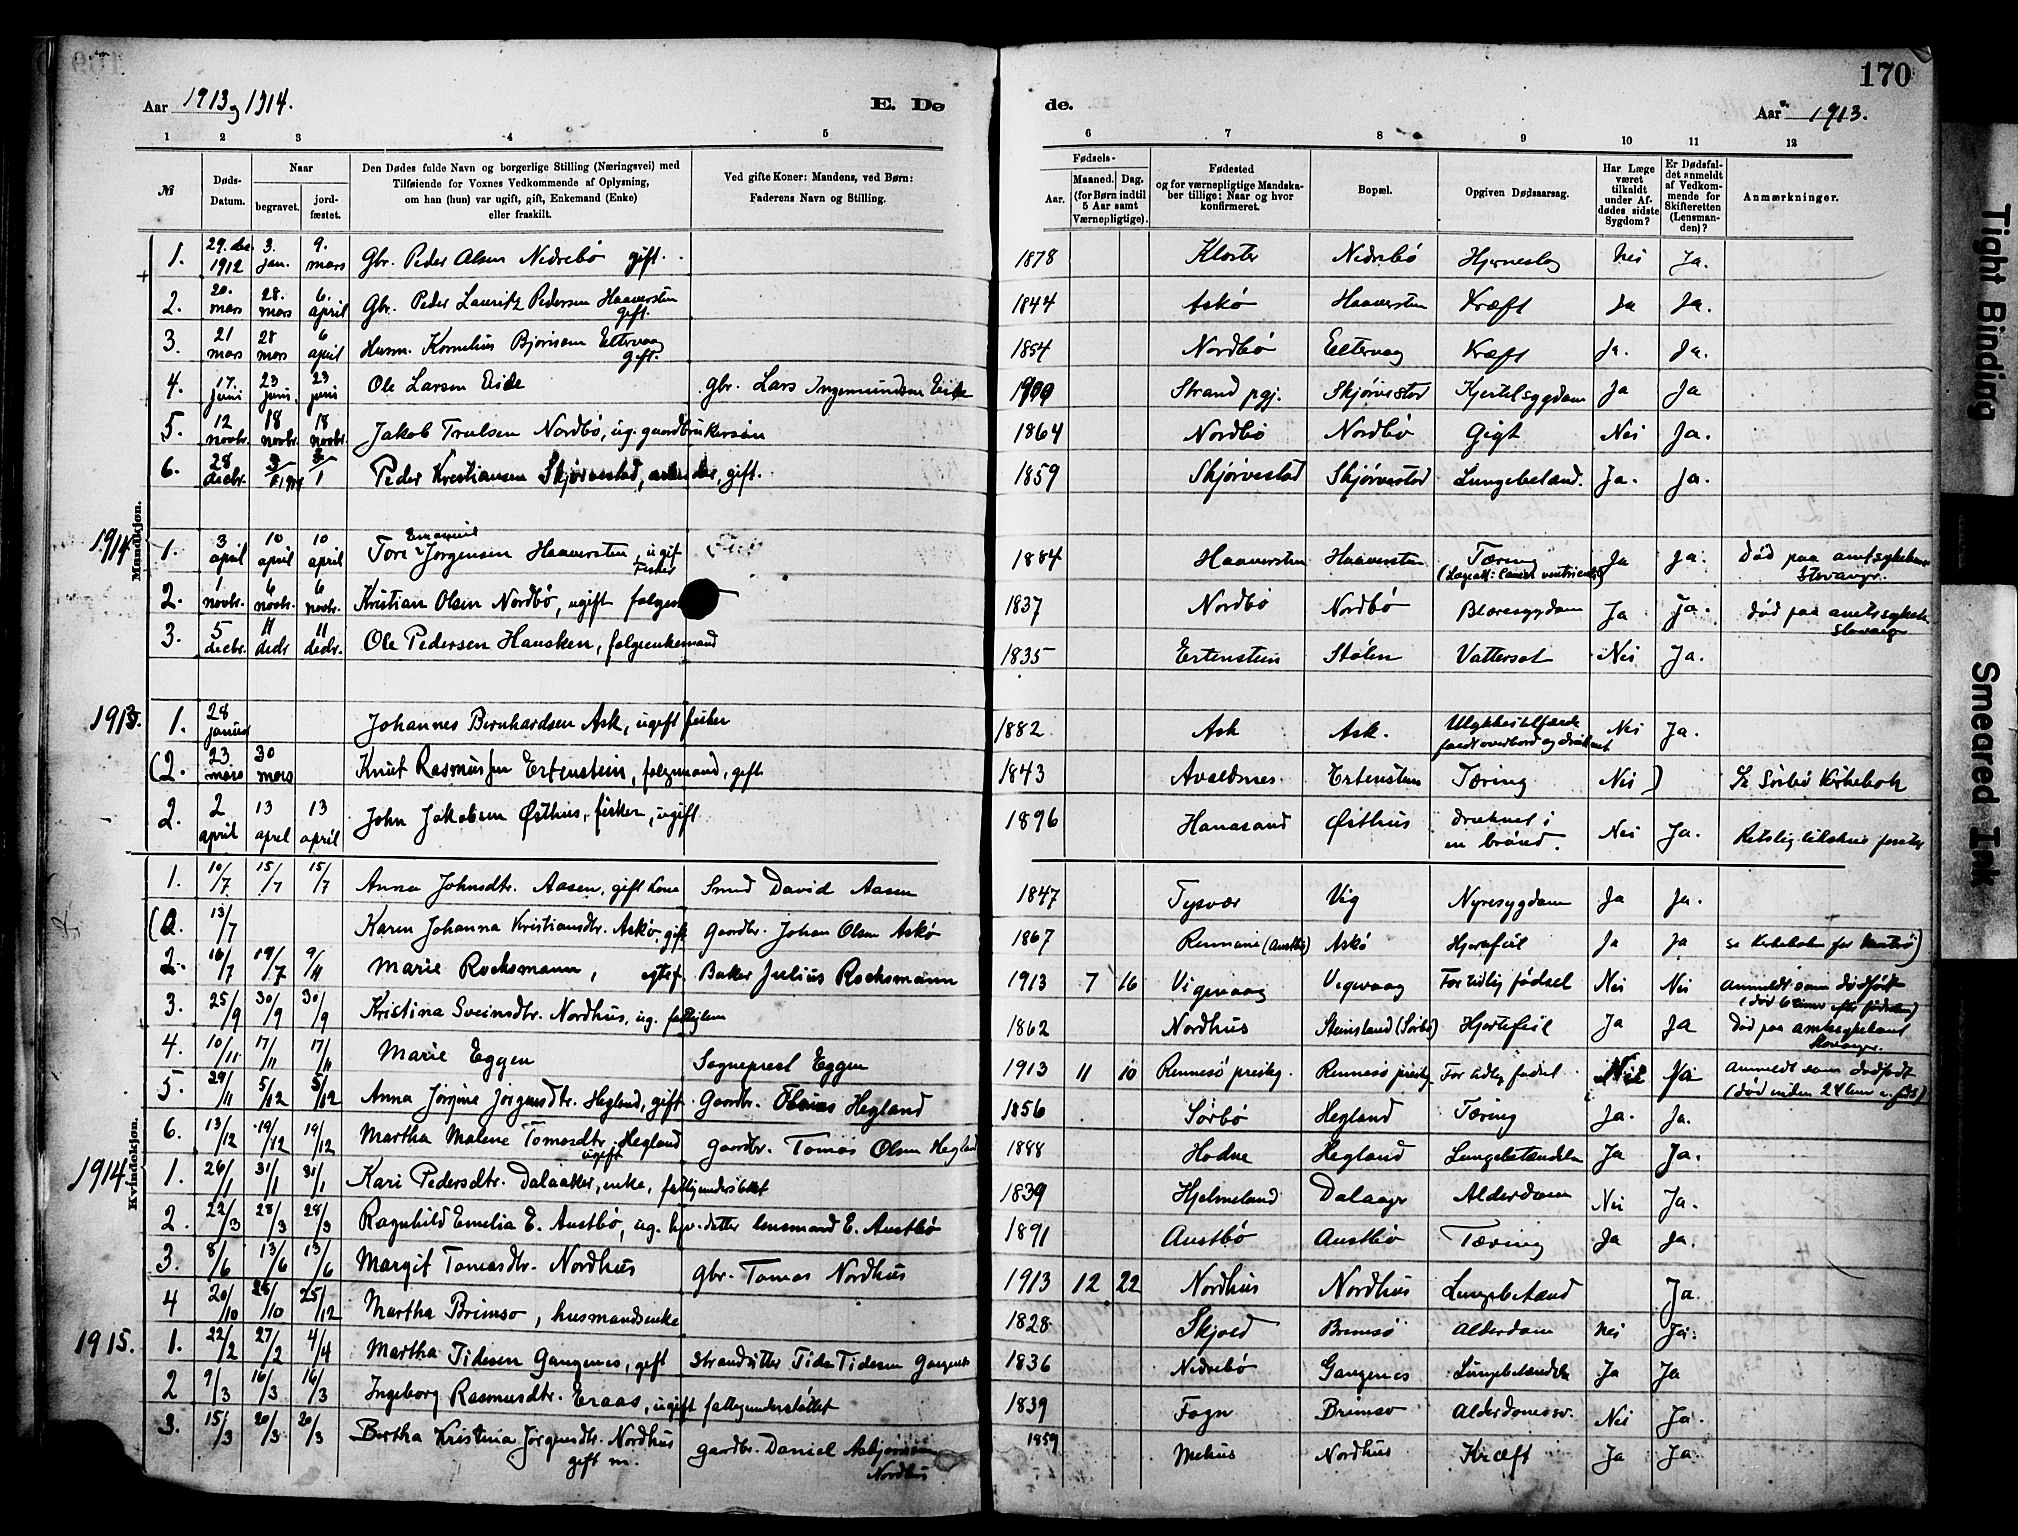 170
Aar 1913 og 1914. E. Dø
de. Aar 1913.
1 2 3 4 5
6 7 8 9 10 11 12
№ Døds-Datum. Naar begravet. jordfæstet. Den Dødes fulde Navn og borgerlige Stilling (Næringsvei) med Tilføiende for Voxnes Vedkommende af Oplysning, om han (hun) var ugift, gift, Enkemand (Enke) eller fraskilt. Ved gifte Koner: Mandens, ved Børn: Faderens Navn og Stilling.
Fødsels- Aar. Maaned. Dag. (for Børn indtil 5 Aar samt Værnepligtige). Fødested og for værnepligtige Mandskaber tillige: Naar og hvor konfirmeret. Bopæl. Opgiven Dødsaarsag. Har Læge været tilkaldt under Afdødes sidste Sygdom? Er Dødsfaldet anmeldt af Vedkommende for Skifteretten (Lensmanden)? Anmærkninger.
Mandkjøn.
1. 29. des. 1912 3. jan. 9. mars Gbr. Peder Olsen Nedrebø gift. 1878 Kloster Nedrebø Hjerneslag Nei Ja.
2. 20. mars 28. mars 6. april Gbr. Peder Lauritz Pedersen Haaversten gift. 1844 Askø Haaversten Kræft Ja Ja.
3. 21 mars 28 mars 6 april Husm. Kornelius Bjørnsen Eltervaag gift. 1854 Nordbø Eltervag Kræft Ja. Ja.
4. 17. juni 23 juni. 23 juni Ole Larsen Eide gbr. Lars Ingemundsen Eide 1900 Strand pgj. Skjørvestad Kjertelsygdom Ja Ja
5. 12 novbr. 18 novbr. 18 novbr. Jakob Trulsen Nordbø, ug. gaardbrukersøn 1864 Nordbø Nordbø Gigt Nei Ja.
6. 28 decbr. 3/1 1914 3/1 Peder Kristiansen Skjørvestad, gift. 1859 Skjørvestad Skjørvestad Lungebetænd. Ja. Ja.
1914. 1. 3 april 10 april 10 april Tore Emanuel Jørgensen Haaversten, ugift Fisker 1884 Haaversten Haaversten Tæring Ja Ja. Død paa amtsykehus Stavanger.
2. 1 novbr. 6 novbr. 6 novbr. Kristian Olsen Nordbø, ugift 1837 Nordbø Nordbø Blæresygdom Ja Ja. død paa amtssykeh. Stavanger
3. 5 decbr. 11 decbr 11 decbr. Ole Pedersen Hausken, følgeenkemand 1835 Ertenstein Stølen Vattersot Nei Ja.
1915. 1. 28 januar Johannes Bernhardsen Ask, ugift fisker 1882 Ask Ask. Ulykkestilfælde faldt overbord og druknet Nei Ja.
(2. 23 mars 30 mars Knut Rasmussen Ertenstein, følgemand, gift 1843 Avaldsnes Ertenstein Tæring Nei ) Se Sørbø Kirkebok
2. 2 april 13 april 13 april John Jakobsen Østhus, fisker, ugift 1896 Hanasand Østhus druknet i en brønd. Nei Ja.
Kvindekjøn.
1. 10/7 15/7 15/7 Anna Johnsdtr. Aasen, gift kone Smed David Aasen 1847 Tysvær Vig Nyresygdom Ja Ja.
(2. 13/7 Karen Johanna Kristiansdtr. Askø, gift Gaardbr. Johan Olsen Askø 1867 Rennesø (Austbø) Askø Hjertefeil Ja Ja se kirkeboken for )
2. 16/7 19/7 9/11 Marie Rocksmann, Baker Julius Rocksmann 1913 7 16 Vigevaag Vigevaag For tidlig fødsel Nei Nei anmeldt som dødfødt (død 6 timer efter fødselen)
3. 25/9 30/9 30/9 Kristina Sveinsdtr. Nordhus, ug. fattiglem 1862 Nordhus Steinsland (Sørbø) Hjertefeil Ja Ja Død paa amtssykehuset Stavanger.
4. 10/11 17/11 17/11 Marie Eggen Sogneprest Eggen 1913 11 10 Rennesø prestg. Rennesø prestg. For tidlig fødsel Nei Ja anmeldt som dødfødt
5. 29/11 5/12 5/12 Anna Jørgine Jørgensdtr. Hegland, gift Gaardbr. Hegland 1856 Sørbø Hegland Tæring Ja. Ja.
6. 13/12 19/12 19/12 Martha Malene Tomasdtr. Hegland ugift Gaardbr. Tomas Olsen Hegland 1888 Hodne Hegland Lungebetændelse Ja Ja.
1914. 1. 26/1 31/1 31/1 Kari Pedersdtr. Dalaaker, enke, fattigunderstøttet 1839 Hjelmeland Dalaager Alderdom Nei Ja.
2. 22/3 28/3 28/3 Ragnhild Emelia E. Austbø, ug. hjv. datter lensmand E. Austbø 1891 Austbø Austbø Tæring Ja Ja.
3. 8/6 13/6 13/6 Margit Tomasdtr. Nordhus gbr. Tomas Nordhus 1913 12 22 Nordhus Nordhus Lungebetænd Ja.
4 20/10 26/10 25/12 Martha Brimsø, husmandsenke 1828 Skjold Brimsø Alderdom Nei Ja.
1915. 1. 22/2 27/2 4/4 Martha Tidesen Gangenes, gift strandsitter Tide Tidesen Gangenes 1836 Nedrebø Gangenes Lungebetændelse Ja Ja
2 9/3 16/3 16/3 Ingeborg Rasmusdtr. Eraas, ugift fattigunderstøttet 1839 Fogn Brimsø Alderdomssv. Nei Ja.
3. 15/3 20/3 20/3 Bertha Kristina Jørgensdtr. Nordhus gift m. gaardbr. Daniel Asbjørnsen Nordhus 1859 Melhus Nordhus Kræft Ja Ja
Tight Binding
Smeared Ink